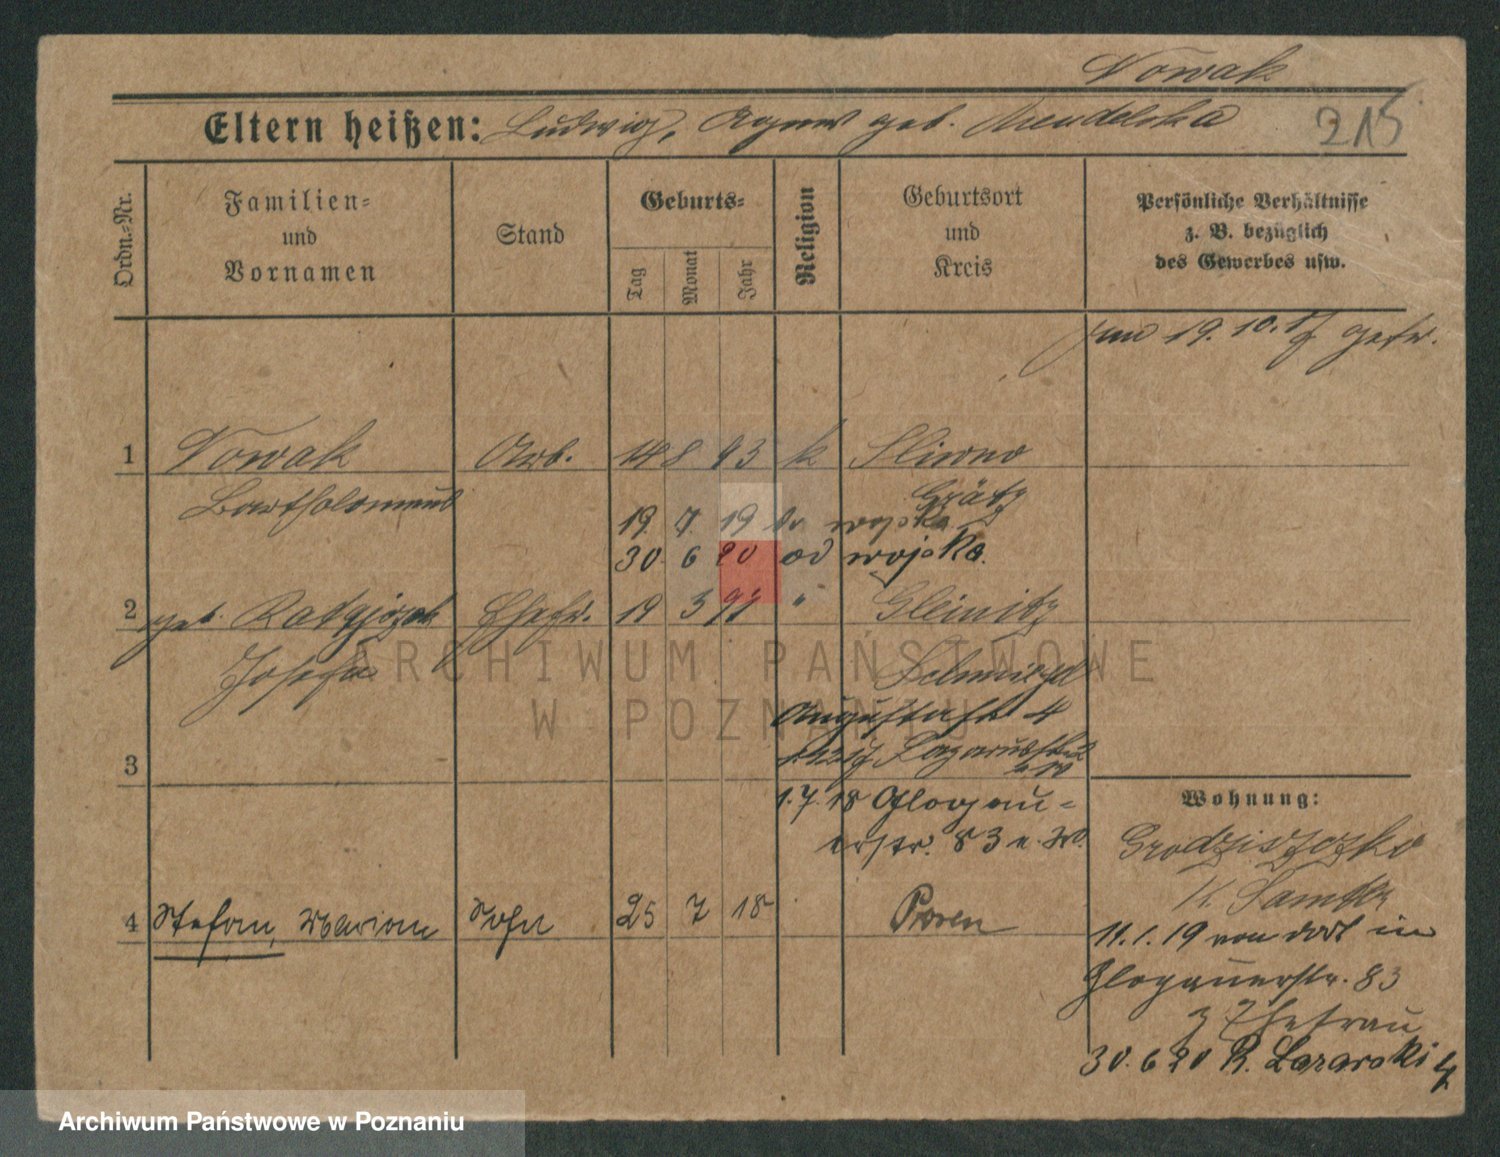 Nowak
Eltern heißen: Ludwig, Agnes geb. Mendelska
215
Ordn.-Nr.
Familien-
und
Vornamen
Stand
Geburts-
Tag
Monat
Jahr
Religion
Geburtsort
und
Kreis
Persönliche Verhältnisse
z. B. bezüglich
des Gewerbes usw.
19. 10. 17 getr.
1 Nowak Arb. 14 8 93 k Sliwno
Bartholomeus Grätz
19. 7. 19 do wojska
30. 6 20 od wojska.
2 geb. Ratajczak Ehefr. 19 3 91 " Gleinitz
Josefa
ARCHIWUM PAŃSTWOWE
W POZNANIU
Augustastr 4
3
1.7.18 Glogau-
erstr. 83 n. W.
Wohnung:
Grodziszczko
K. Samter
4 Stefan, Marian Sohn 25 7 18 Posen
11.1.19 von dort in
Glogauerstr. 83
z Ehefrau
30.6 20 R. Lazarski 4
Archiwum Państwowe w Poznaniu